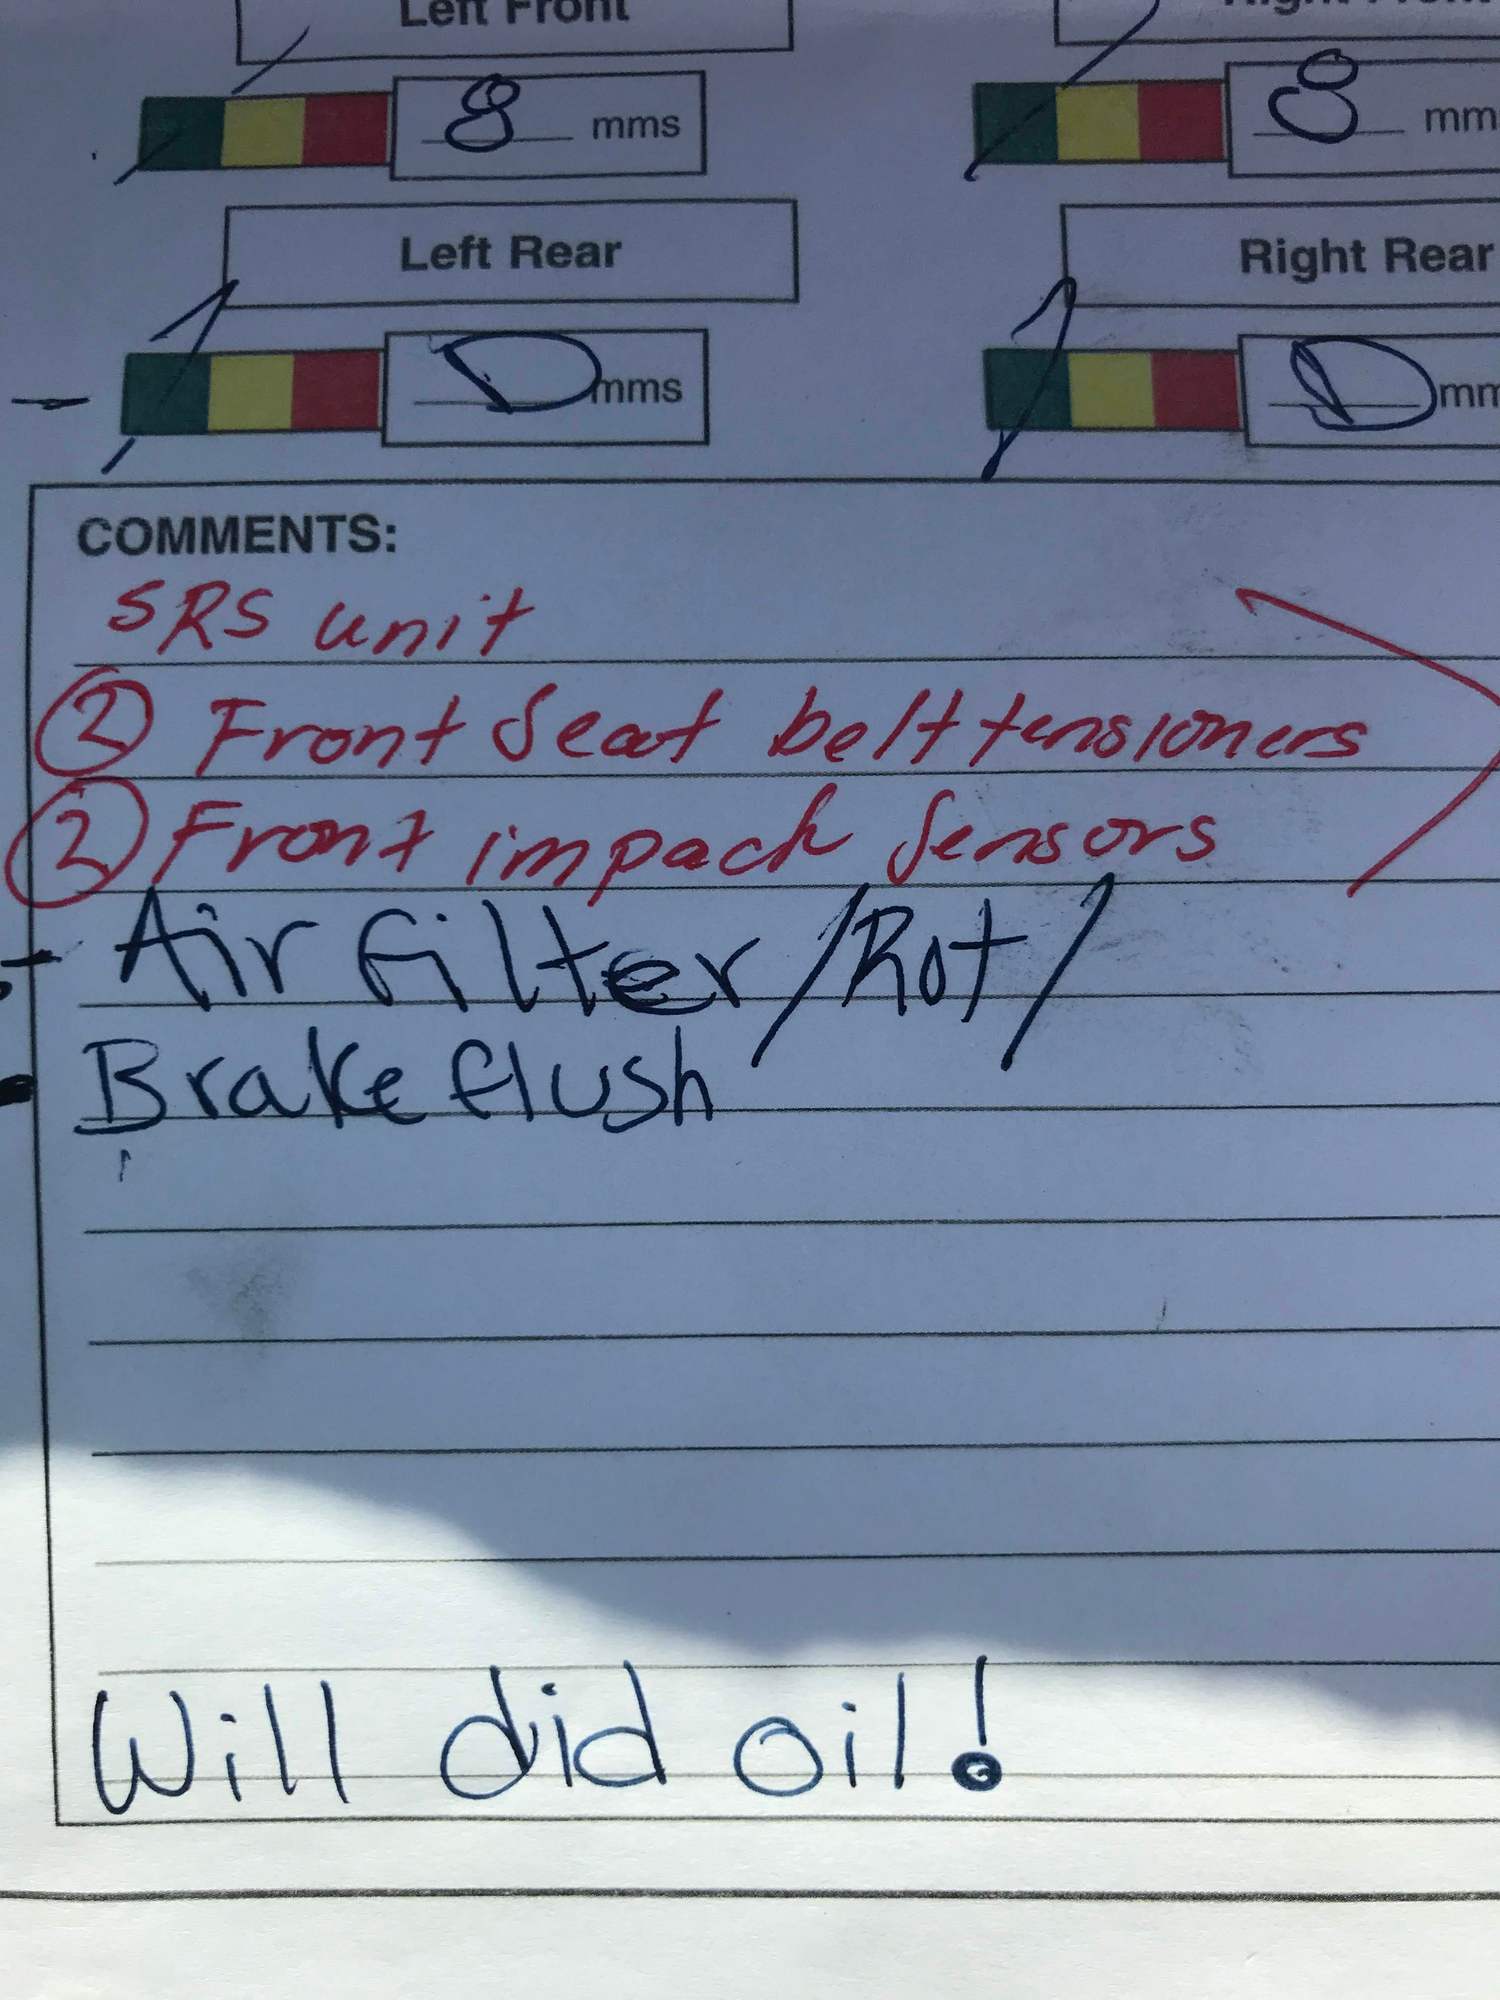 Left Front
8 mms
8 mm
Left Rear
Right Rear
D mms
D mm
COMMENTS:
SRS unit
② Front Seat belt tensioners
② Front impact Sensors
- Air filter/Rot/
Brake flush
Will did oil!